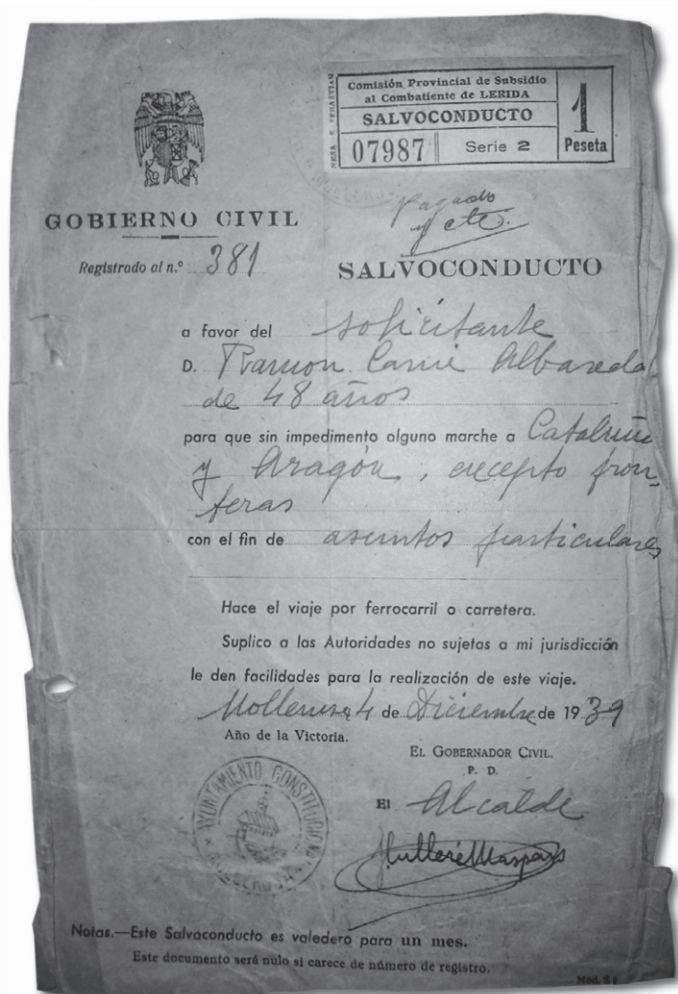 Comisión Provincial de Subsidio
al Combatiente de LERIDA
SALVOCONDUCTO
07987 Serie 2
1
Peseta
GOBIERNO CIVIL
Registrado al n.º 381
Pagado
SALVOCONDUCTO
a favor del solicitante
D. Ramon Carné Albareda
de 48 años
para que sin impedimento alguno marche a Cataluña
y Aragón, excepto fron-
teras
con el fin de asuntos particulares
Hace el viaje por ferrocarril o carretera.
Suplico a las Autoridades no sujetas a mi jurisdicción
le den facilidades para la realización de este viaje.
Mollerusa 4 de Diciembre de 1939
Año de la Victoria.
EL GOBERNADOR CIVIL.
P. D.
El Alcalde
AYUNTAMIENTO CONSTITUCIONAL
Notas.—Este Salvoconducto es valedero para un mes.
Este documento será nulo si carece de número de registro.